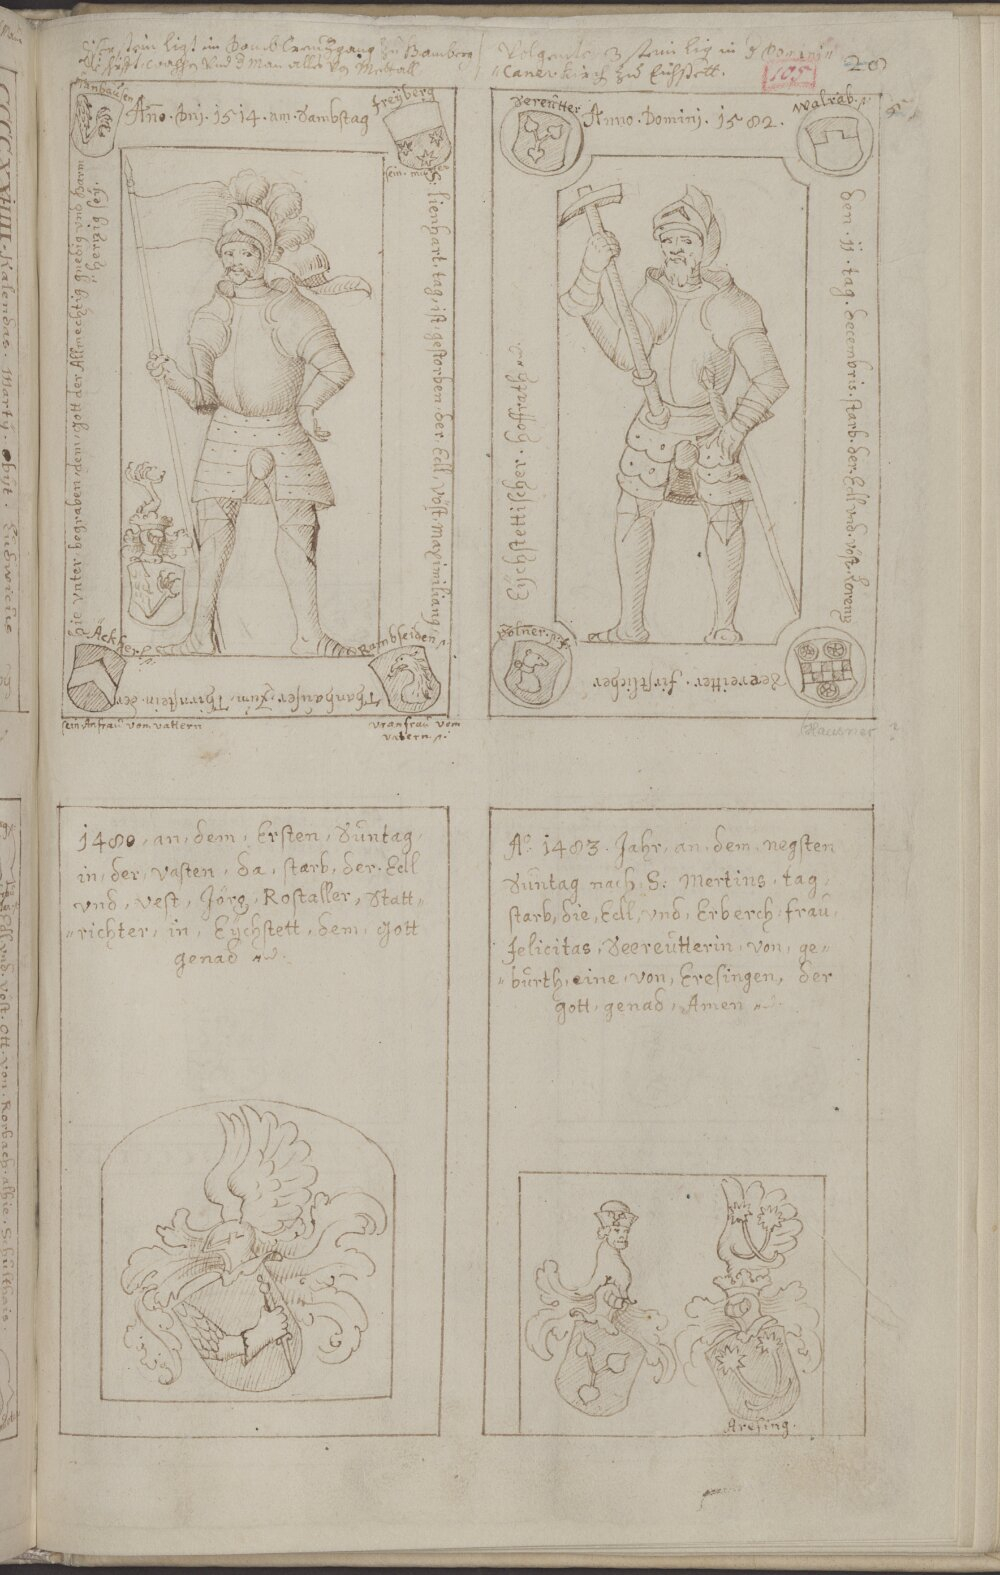 Diser stein ligt im Domb Creuzgang zu Bamberg
die schrift, wappen vnd d Man alles von Mettall
Volgende 3 stein lig in d Domini"
"Caner kirch zuo Eichstett.
105
28
Thanhausen
Año. Dni. 1514. am. Sambstag
freyberg
sein. mutter
S: lienhart. tag. ist. gestorben. der. Edl. vöst. Maximilian.
Bambseiden
Thanhauser. Zum. Thirnstein. der
Äckher
hie vnter. begraben. dem. gott der Allmechtig gnedig vnd Barm
hertzig sey.
sein Anfrau vom vattern
vranfrau vom
vatern
Sereütter
Anno. Domini. 1582.
Walrab.
den. 11. tag. decembris. starb. der. Edl vnd. vöst. Lorenz
Seereitter. fürstlicher
Eychstettischer. hoffrath
Hausner ?
1480. an. dem. Ersten. Suntag.
in. der. vasten. da. starb. der. Edl
vnd. vest. Jörg. Rostaller. Statt"
"richter. in. Eychstett. dem. Gott
genad
Aº. 1483. Jahr. an. dem. negsten
Suntag nach. S: Mertins. tag.
starb. die. Edl. vnd. Erberch. frau.
felicitas. Seereütterin. von. ge"
"burth. eine. von. Eresingen. der
gott. genad. Amen
Aresing.